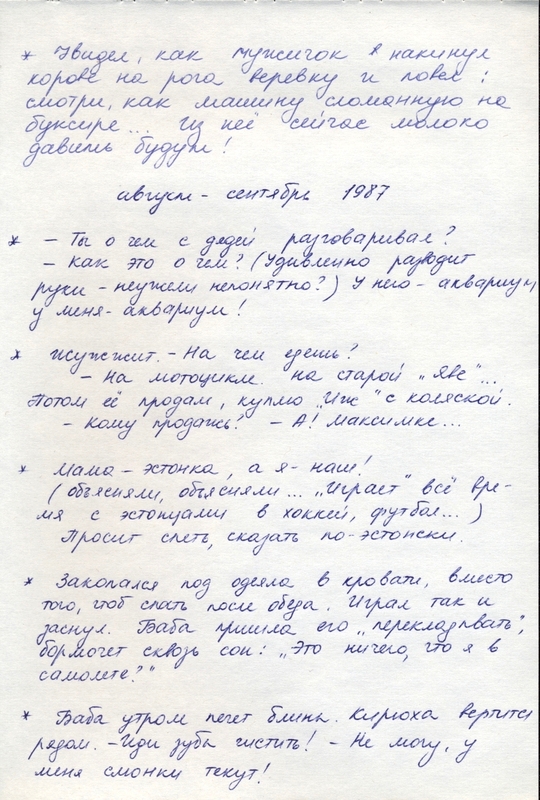 * Увидел, как мужичок накинул
корове на рога веревку и повел:
смотри, как машину сломанную на
буксире... Из неё сейчас молоко
давить будут!
август - сентябрь 1987
* - Ты о чем с дядей разговаривал?
- Как это о чем? (Удивленно разводит
руки - неужели непонятно?) У него - аквариум,
у меня - аквариум!
* Жужжит. - На чем едешь?
- На мотоцикле. На старой „Яве"...
Потом её продам, куплю „Иж" с коляской.
- Кому продашь? - А! Максимке...
* Мама - эстонка, а я - наш!
(Объясняли, объясняли... „Играет" всё вре-
мя с эстонцами в хоккей, футбол...)
Просит спеть, сказать по-эстонски.
* Закопался под одеяла в кровати, вместо
того, чтоб спать после обеда. Играл так и
заснул. Баба пришла его „перекладывать",
бормочет сквозь сон: „Это ничего, что я в
самолете?"
* Баба утром печет блины. Кирюха вертится
рядом. - Иди зубы чистить! - Не могу, у
меня слюнки текут!